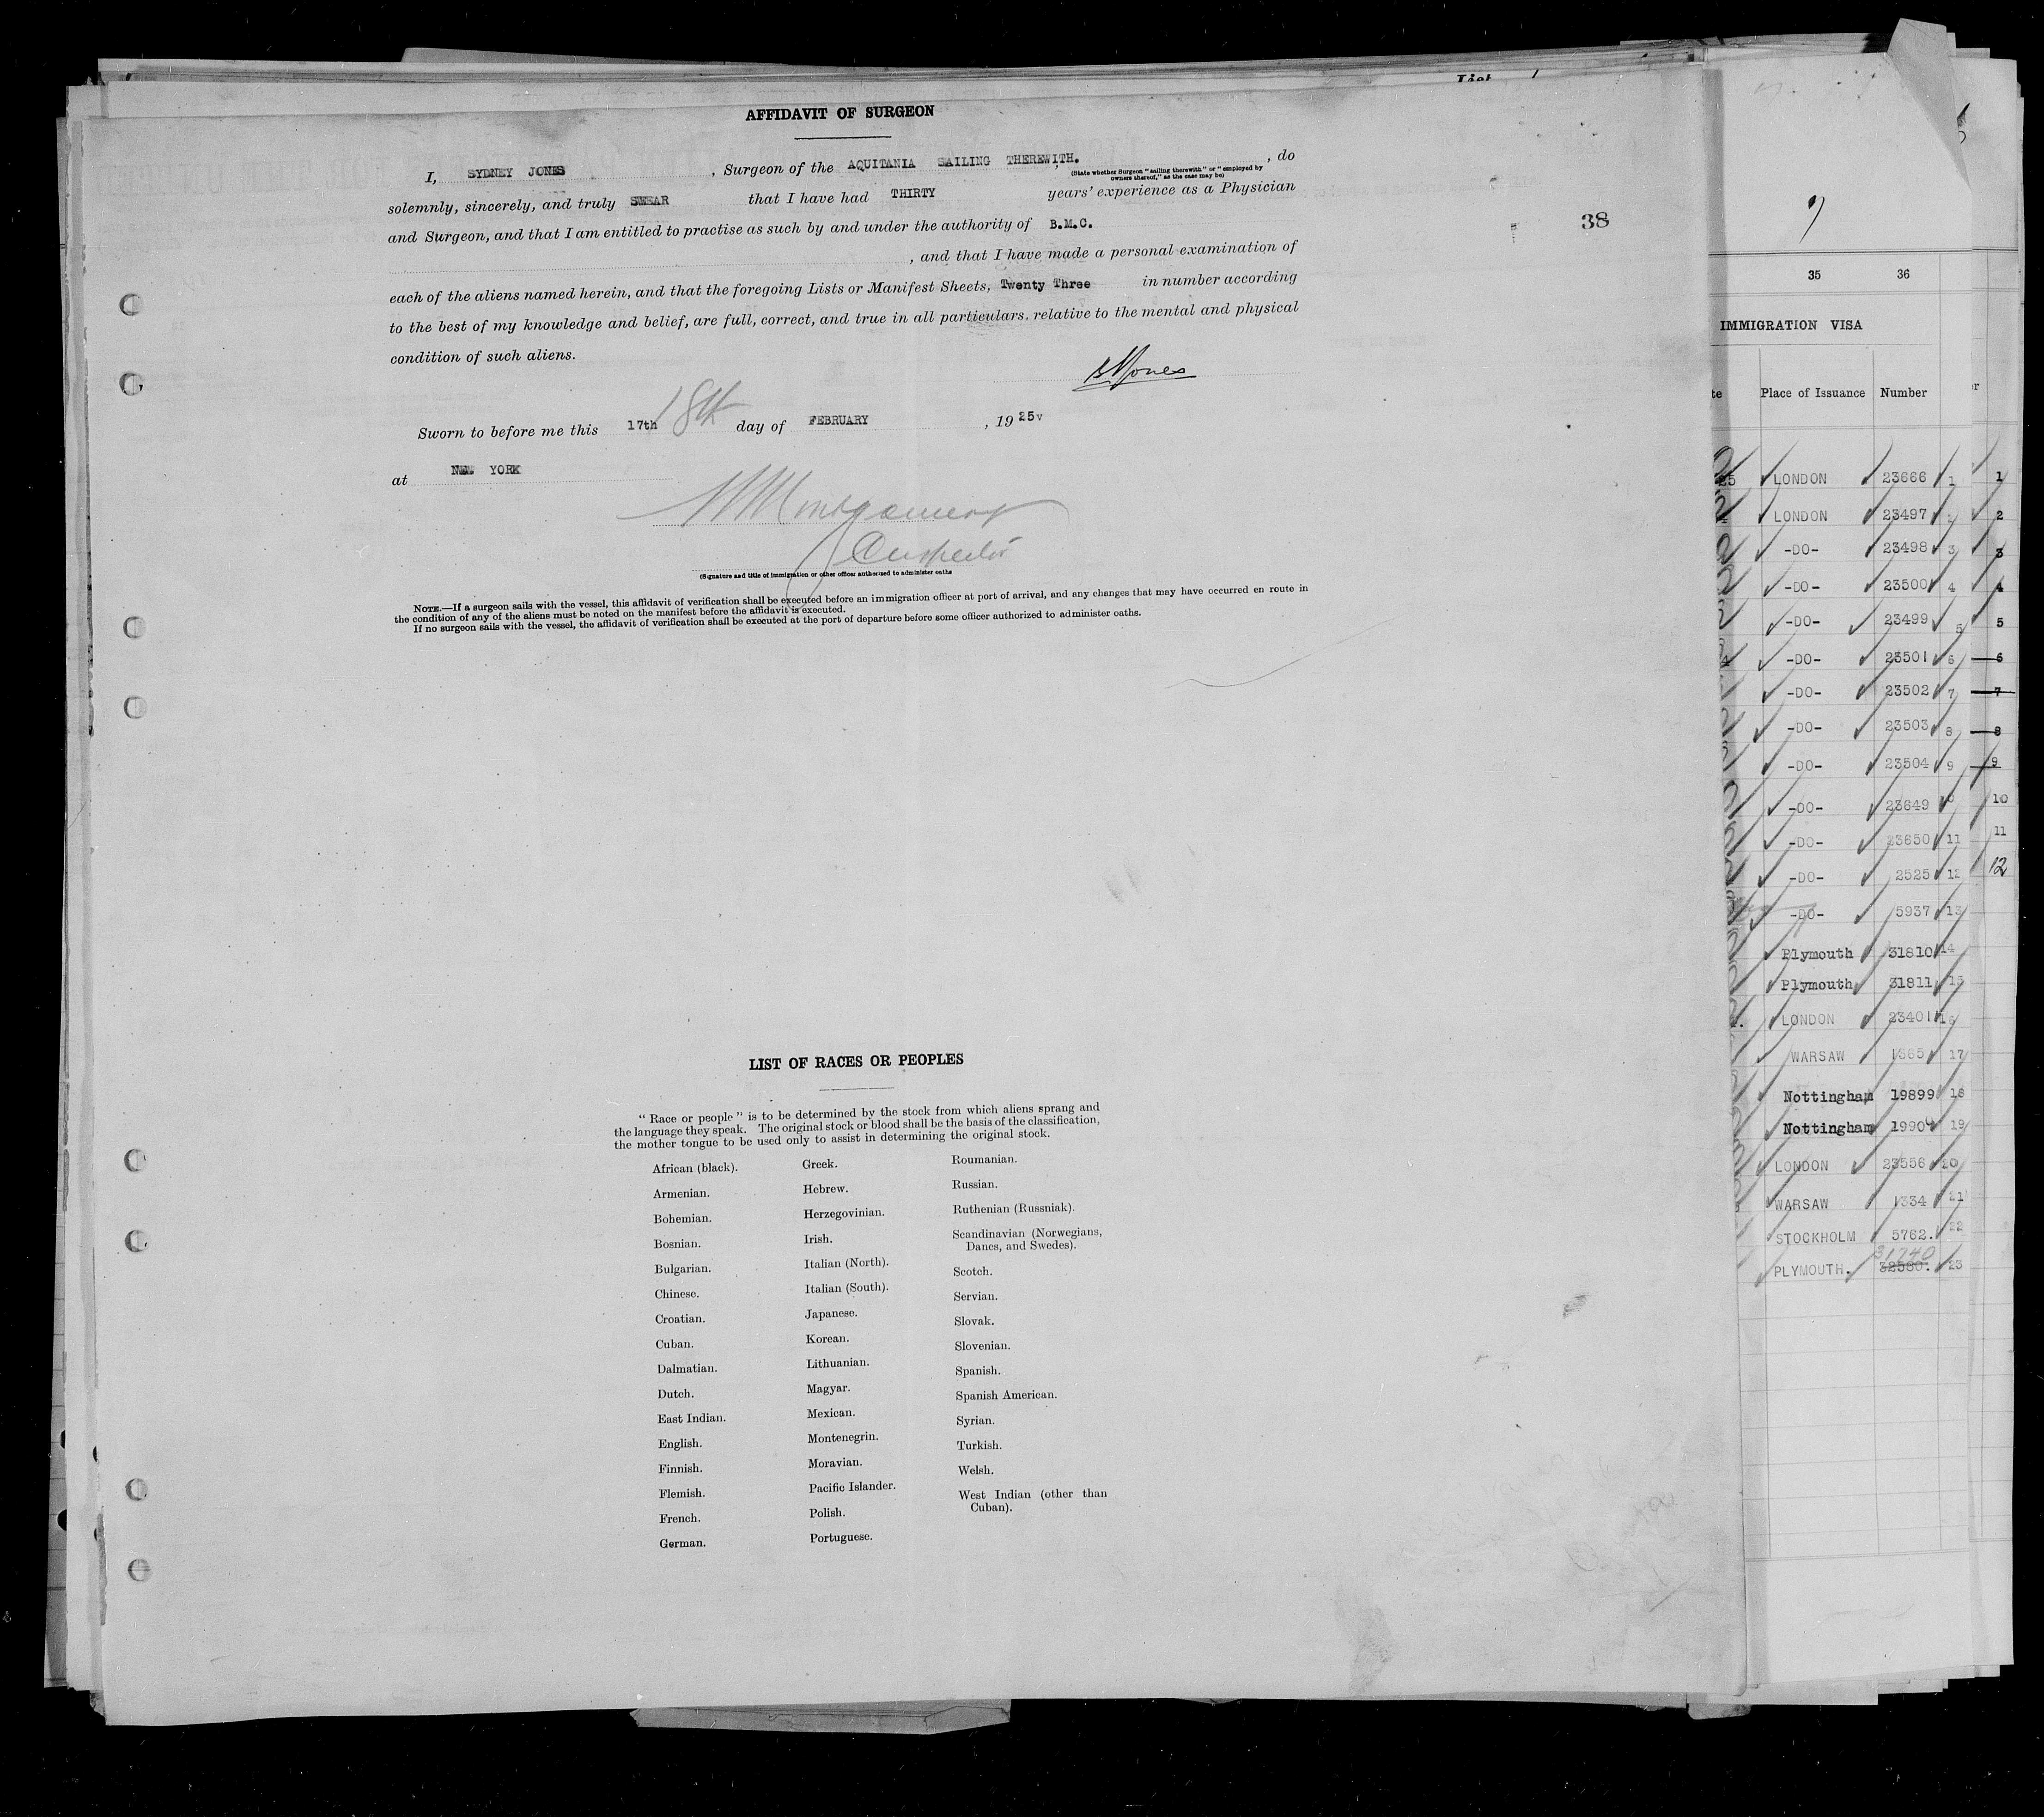 List
AFFIDAVIT OF SURGEON
I, SYDNEY JONES, Surgeon of the AQUITANIA SAILING THEREWITH. , do
(State whether Surgeon "sailing therewith" or "employed by
owners thereof," as the case may be)
solemnly, sincerely, and truly SWEAR that I have had THIRTY years' experience as a Physician
and Surgeon, and that I am entitled to practise as such by and under the authority of B.M.C.
, and that I have made a personal examination of
each of the aliens named herein, and that the foregoing Lists or Manifest Sheets, Twenty Three in number according
to the best of my knowledge and belief, are full, correct, and true in all particulars, relative to the mental and physical
condition of such aliens.
SJones
Sworn to before me this 17th 18th day of FEBRUARY , 1925
at NEW YORK
Montgomery
Inspector
(Signature and title of immigration or other officer authorized to administer oaths
NOTE.—If a surgeon sails with the vessel, this affidavit of verification shall be executed before an immigration officer at port of arrival, and any changes that may have occurred en route in
the condition of any of the aliens must be noted on the manifest before the affidavit is executed.
If no surgeon sails with the vessel, the affidavit of verification shall be executed at the port of departure before some officer authorized to administer oaths.
38
LIST OF RACES OR PEOPLES
"Race or people" is to be determined by the stock from which aliens sprang and
the language they speak. The original stock or blood shall be the basis of the classification,
the mother tongue to be used only to assist in determining the original stock.
African (black).
Armenian.
Bohemian.
Bosnian.
Bulgarian.
Chinese.
Croatian.
Cuban.
Dalmatian.
Dutch.
East Indian.
English.
Finnish.
Flemish.
French.
German.
Greek.
Hebrew.
Herzegovinian.
Irish.
Italian (North).
Italian (South).
Japanese.
Korean.
Lithuanian.
Magyar.
Mexican.
Montenegrin.
Moravian.
Pacific Islander.
Polish.
Portuguese.
Roumanian.
Russian.
Ruthenian (Russniak).
Scandinavian (Norwegians,
Danes, and Swedes).
Scotch.
Servian.
Slovak.
Slovenian.
Spanish.
Spanish American.
Syrian.
Turkish.
Welsh.
West Indian (other than
Cuban).
35 36
IMMIGRATION VISA
Place of Issuance Number
LONDON 23666 1 1
LONDON 23497 2 2
-DO- 23498 3 3
-DO- 23500 4 4
-DO- 23499 5 5
-DO- 23501 6 6
-DO- 23502 7 7
-DO- 23503 8 8
-DO- 23504 9 9
-DO- 23649 10
-DO- 23650 11 11
-DO- 2525 12 12
-DO- 5937 13
Plymouth 31810 14
Plymouth 31811 15
LONDON 23401 16
WARSAW 17
Nottingham 19899 18
Nottingham 1990 19
LONDON 23556 20
WARSAW 1334 21
STOCKHOLM 5762. 22
31740
PLYMOUTH. 32580. 23